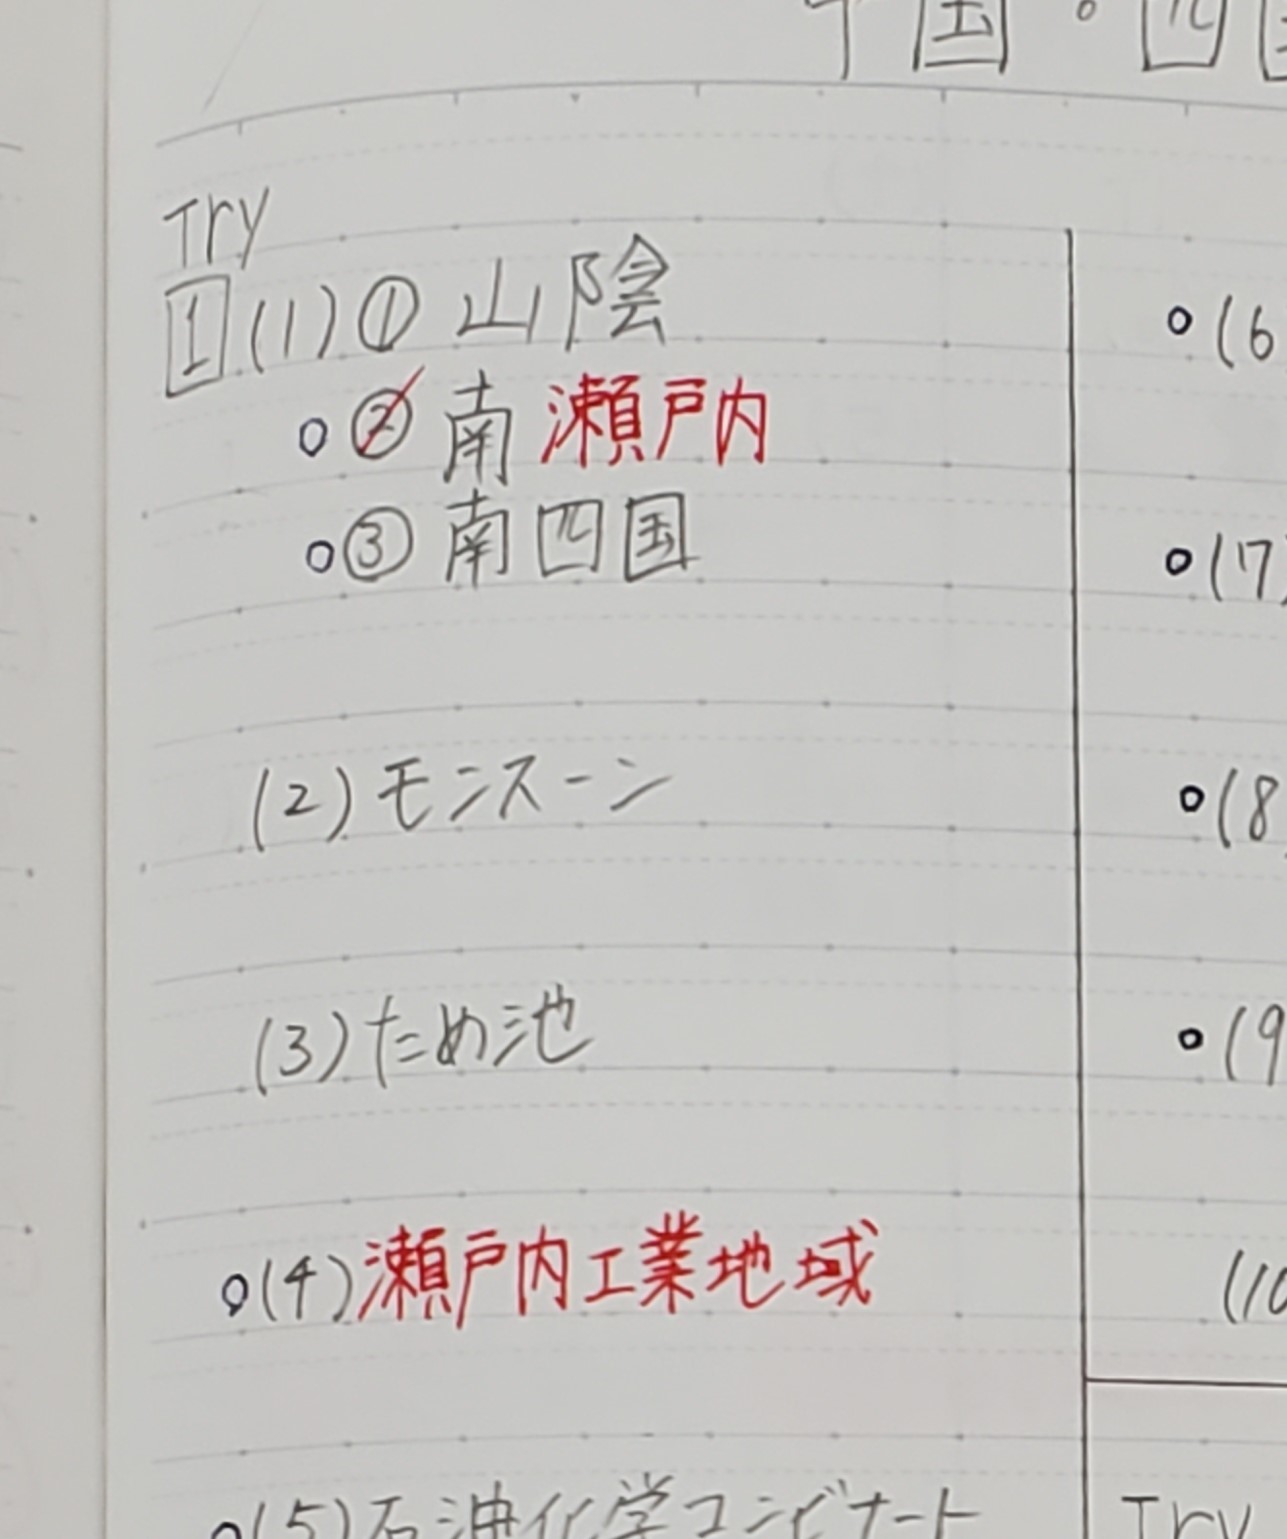 中国・四国
Try
1 (1) ① 山陰
○ ② 南 瀬戸内
○ ③ 南四国
(2) モンスーン
(3) ため池
○ (4) 瀬戸内工業地域
○ (5) 石油化学コンビナート
○ (6
○ (7)
○ (8
○ (9
(10
Try